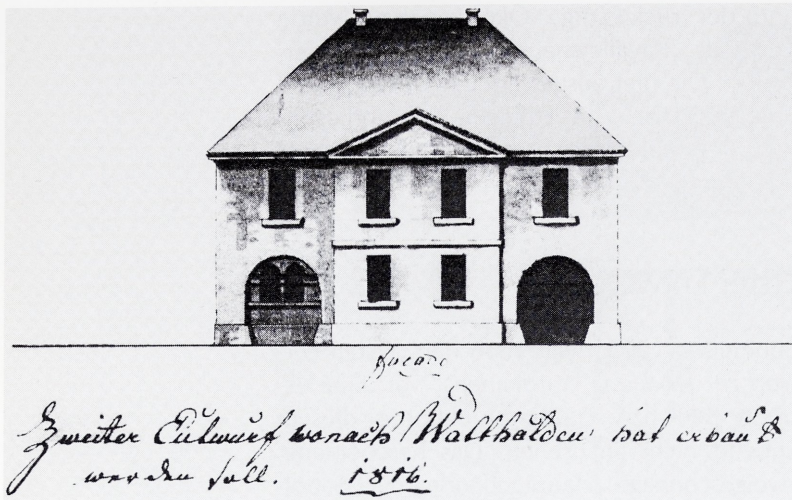 façade
Zweiter Entwurf wonach Waldhalden hat erbaut
werden soll. 1816.